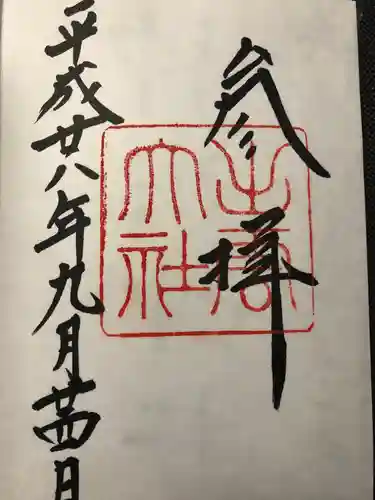 参拝
大社
平成廿八年九月廿四日